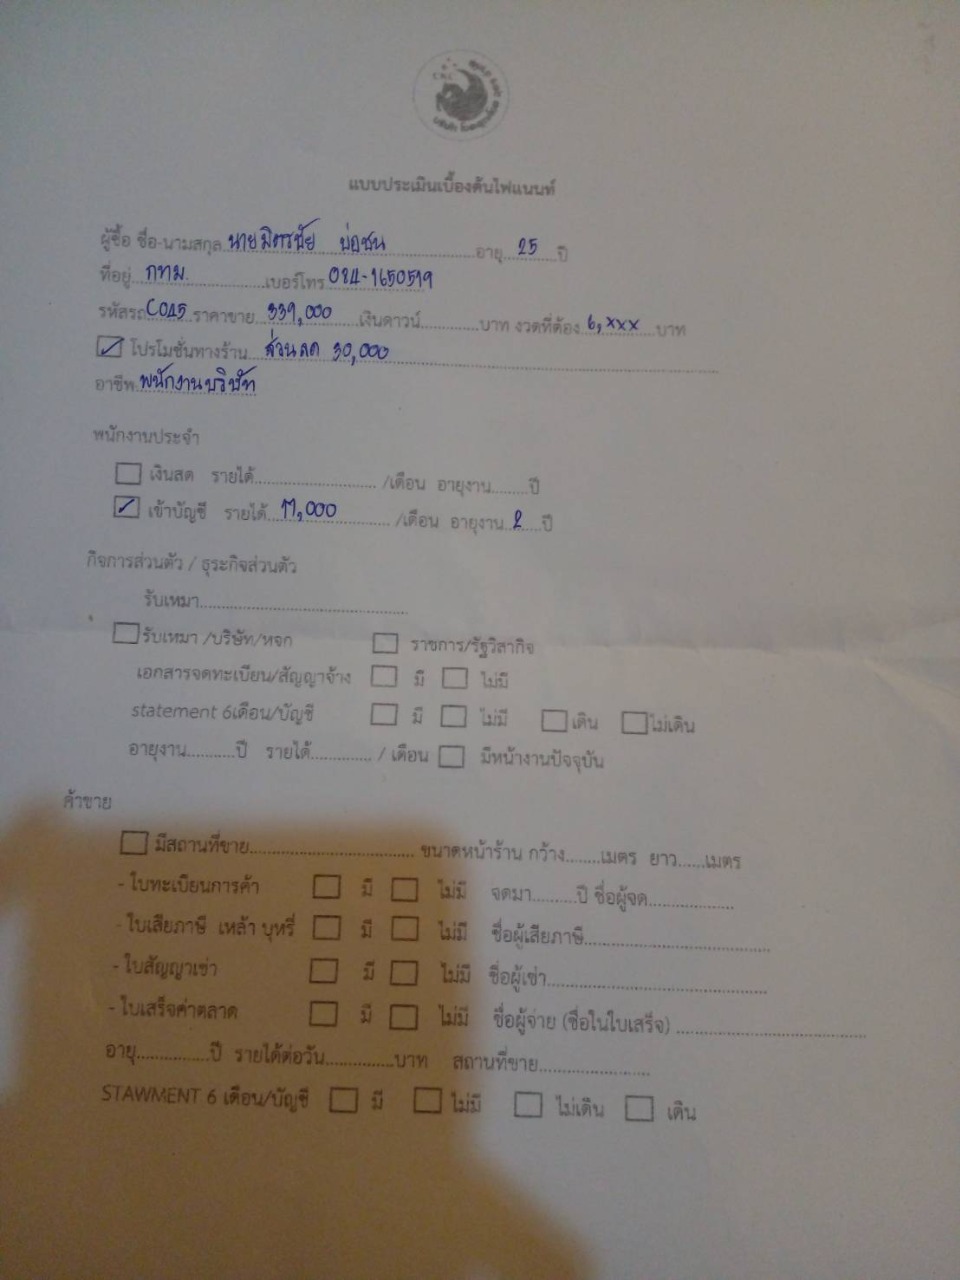 CNC
แบบประเมินเบื้องต้นไฟแนนท์
ผู้ซื้อ ชื่อ-นามสกุล นายมิตรชัย บ่อชน อายุ 25 ปี
ที่อยู่ กทม. เบอร์โทร 084-1650519
รหัสรถ C045 ราคาขาย 339,000 เงินดาวน์............บาท งวดที่ต้อง 6,xxx บาท
โปรโมชั่นทางร้าน ส่วนลด 30,000
อาชีพ พนักงานบริษัท
พนักงานประจำ
เงินสด รายได้........................ /เดือน อายุงาน........ปี
เข้าบัญชี รายได้ 17,000 /เดือน อายุงาน 2 ปี
กิจการส่วนตัว / ธุระกิจส่วนตัว
รับเหมา..........................................
รับเหมา /บริษัท/หจก ราชการ/รัฐวิสากิจ
เอกสารจดทะเบียน/สัญญาจ้าง มี ไม่มี
statement 6เดือน/บัญชี มี ไม่มี เดิน ไม่เดิน
อายุงาน..........ปี รายได้............ / เดือน มีหน้างานปัจจุบัน
ค้าขาย
มีสถานที่ขาย................................. ขนาดหน้าร้าน กว้าง.......เมตร ยาว......เมตร
- ใบทะเบียนการค้า มี ไม่มี จดมา.........ปี ชื่อผู้จด.................
- ใบเสียภาษี เหล้า บุหรี่ มี ไม่มี ชื่อผู้เสียภาษี.....................................
- ใบสัญญาเช่า มี ไม่มี ชื่อผู้เช่า............................................
- ใบเสร็จค่าตลาด มี ไม่มี ชื่อผู้จ่าย (ชื่อในใบเสร็จ) .....................................
อายุ...............ปี รายได้ต่อวัน..............บาท สถานที่ขาย......................
STAWMENT 6 เดือน/บัญชี มี ไม่มี ไม่เดิน เดิน